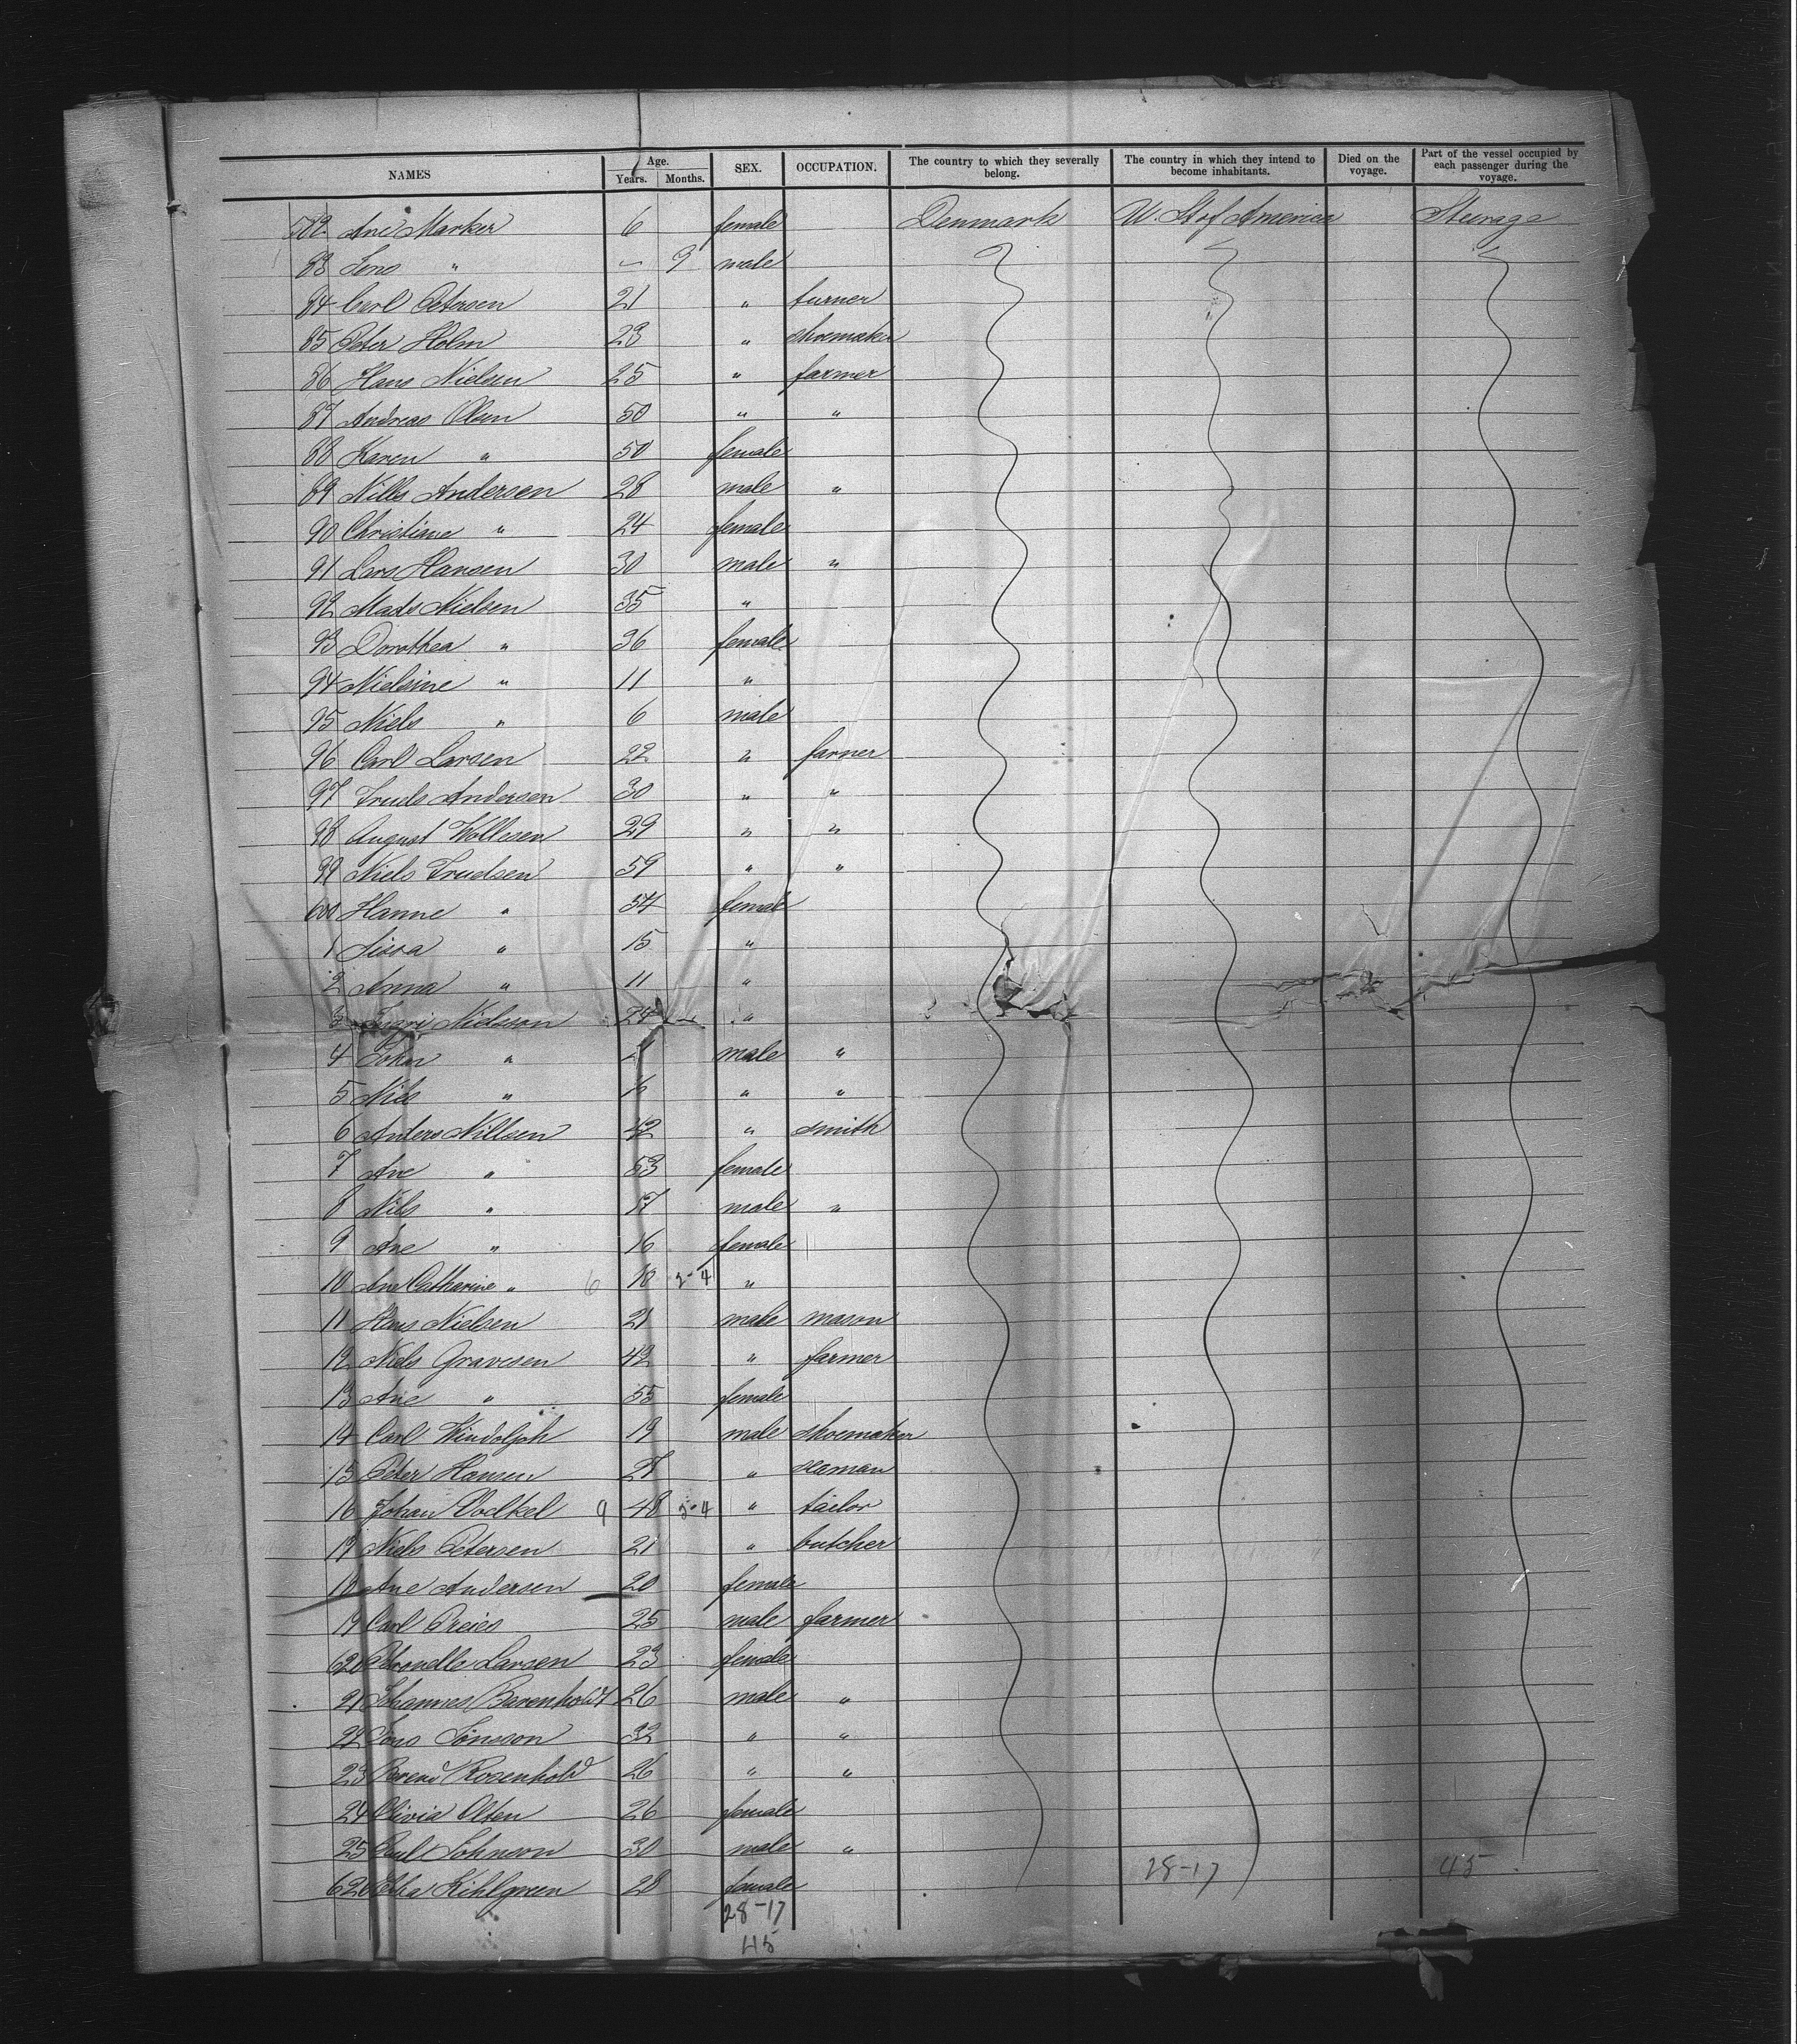 NAMES Age. Years. Months. SEX. OCCUPATION. The country to which they severally belong. The country in which they intend to become inhabitants. Died on the voyage. Part of the vessel occupied by each passenger during the voyage.
582 Ane Marker 6 female Denmark U. St of America Steerage
83 Jens " — 9 male
84 Carl Petersen 21 " turner
85 Peter Holm 23 " shoemaker
86 Hans Nielsen 25 " farmer
87 Andreas Olsen 50 " "
88 Karen " 50 female
89 Nills Andersen 28 male "
90 Christiane " 24 female
91 Lars Hansen 30 male "
92 Mads Nielsen 35 "
93 Dorothea " 36 female
94 Nielsine " 11 "
95 Niels " 6 male
96 Carl Larsen 22 " farmer
97 Truels Andersen 30 " "
98 August Wollesen 29 " "
99 Niels Truelsen 59 " "
600 Hanne " 54 female
1 Sissa " 15 "
2 Anna " 11 "
3 Ingri Nielsson 24 "
4 John " male "
5 Nils " " "
6 Anders Nillsen 42 " smith
7 Ane " 53 female
8 Nils " 17 male "
9 Ane " 16 female
10 Ane Catharine " 6 10 2-4 "
11 Hans Nielsen 21 male mason
12 Niels Gravesen 42 " farmer
13 Ane " 55 female
14 Carl Windolph 19 male shoemaker
15 Peter Hansen 27 " seaman
16 Johan Voelkel 9 48 5-4 " tailor
17 Niels Petersen 21 " butcher
18 Ane Andersen 20 female
19 Carl Preies 25 male farmer
620 Petronelle Larsen 23 female
21 Johannes Barenholdt 26 male "
22 Jöns Jönsson 32 " "
23 Berend Rosenhold 26 " "
24 Olivia Olsen 26 female
25 Paul Johnson 30 male "
626 Kihlgreen 28 female
28-17 28-17 45
45